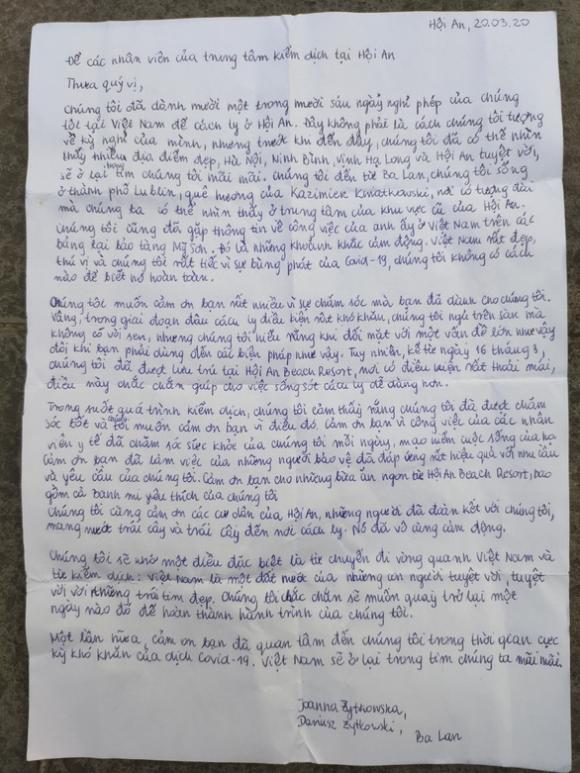 Hội An, 20.03.20
Để các nhân viên của trung tâm kiểm dịch tại Hội An
Thưa quý vị,
Chúng tôi đã dành mười một trong mười sáu ngày nghỉ phép của chúng
tôi tại Việt Nam để cách ly ở Hội An. Đây không phải là cách chúng tôi tưởng
về kỳ nghỉ của mình, nhưng trước khi đến đây, chúng tôi đã có thể nhìn
thấy nhiều địa điểm đẹp, Hà Nội, Ninh Bình, Vịnh Hạ Long và Hội An tuyệt vời,
sẽ ở lại trong tim chúng tôi mãi mãi. Chúng tôi đến từ Ba Lan, chúng tôi sống
ở thành phố Lublin, quê hương của Kazimier Kwiatkowski, nơi có tượng đài
mà chúng ta có thể nhìn thấy ở trung tâm của khu vực cũ của Hội An.
Chúng tôi cũng đã gặp thông tin về công việc của anh ấy ở Việt Nam trên các
bảng tại bảo tàng Mỹ Sơn. Đó là những khoảnh khắc cảm động. Việt Nam rất đẹp,
thú vị và chúng tôi rất tiếc vì sự bùng phát của Covid-19, chúng tôi không có cách
nào để biết nó hoàn toàn.
Chúng tôi muốn cảm ơn bạn rất nhiều vì sự chăm sóc mà bạn đã dành cho chúng tôi.
Vâng, trong giai đoạn đầu cách ly điều kiện rất khó khăn, chúng tôi ngủ trên sàn mà
không có vòi sen, nhưng chúng tôi hiểu rằng khi đối mặt với một vấn đề lớn như vậy
đôi khi bạn phải dùng đến các biện pháp như vậy. Tuy nhiên, kể từ ngày 16 tháng 3,
chúng tôi đã được lưu trú tại Hội An Beach Resort, nơi có điều kiện rất thoải mái,
điều này chắc chắn giúp cho việc sống sót cách ly dễ dàng hơn.
Trong suốt quá trình kiểm dịch, chúng tôi cảm thấy rằng chúng tôi đã được chăm
sóc tốt và chúng tôi muốn cảm ơn bạn vì điều đó. Cảm ơn bạn vì công việc của các nhân
viên y tế đã chăm sóc sức khỏe của chúng tôi mỗi ngày, mạo hiểm cuộc sống của họ.
Cảm ơn bạn đã làm việc của những người bảo vệ đã đáp ứng rất hiệu quả với nhu cầu
và yêu cầu của chúng tôi. Cảm ơn bạn cho những bữa ăn ngon từ Hội An Beach Resort, bao
gồm cả banh mi yêu thích của chúng tôi
Chúng tôi cũng cảm ơn các cư dân của Hội An, những người đã đoàn kết với chúng tôi,
mang nước trái cây và trái cây đến nơi cách ly. Nó đã vô cùng cảm động.
Chúng tôi sẽ nhớ một điều đặc biệt là từ chuyến đi vòng quanh Việt Nam và
từ kiểm dịch: Việt Nam là một đất nước của những con người tuyệt vời, tuyệt
vời với những trái tim đẹp. Chúng tôi chắc chắn sẽ muốn quay trở lại một
ngày nào đó để hoàn thành hành trình của chúng tôi.
Một lần nữa, cảm ơn bạn đã quan tâm đến chúng tôi trong thời gian cực
kỳ khó khăn của dịch Covid-19. Việt Nam sẽ ở lại trong tim chúng ta mãi mãi.
Joanna Żytkowska,
Dariusz Żytkowski,
Ba Lan